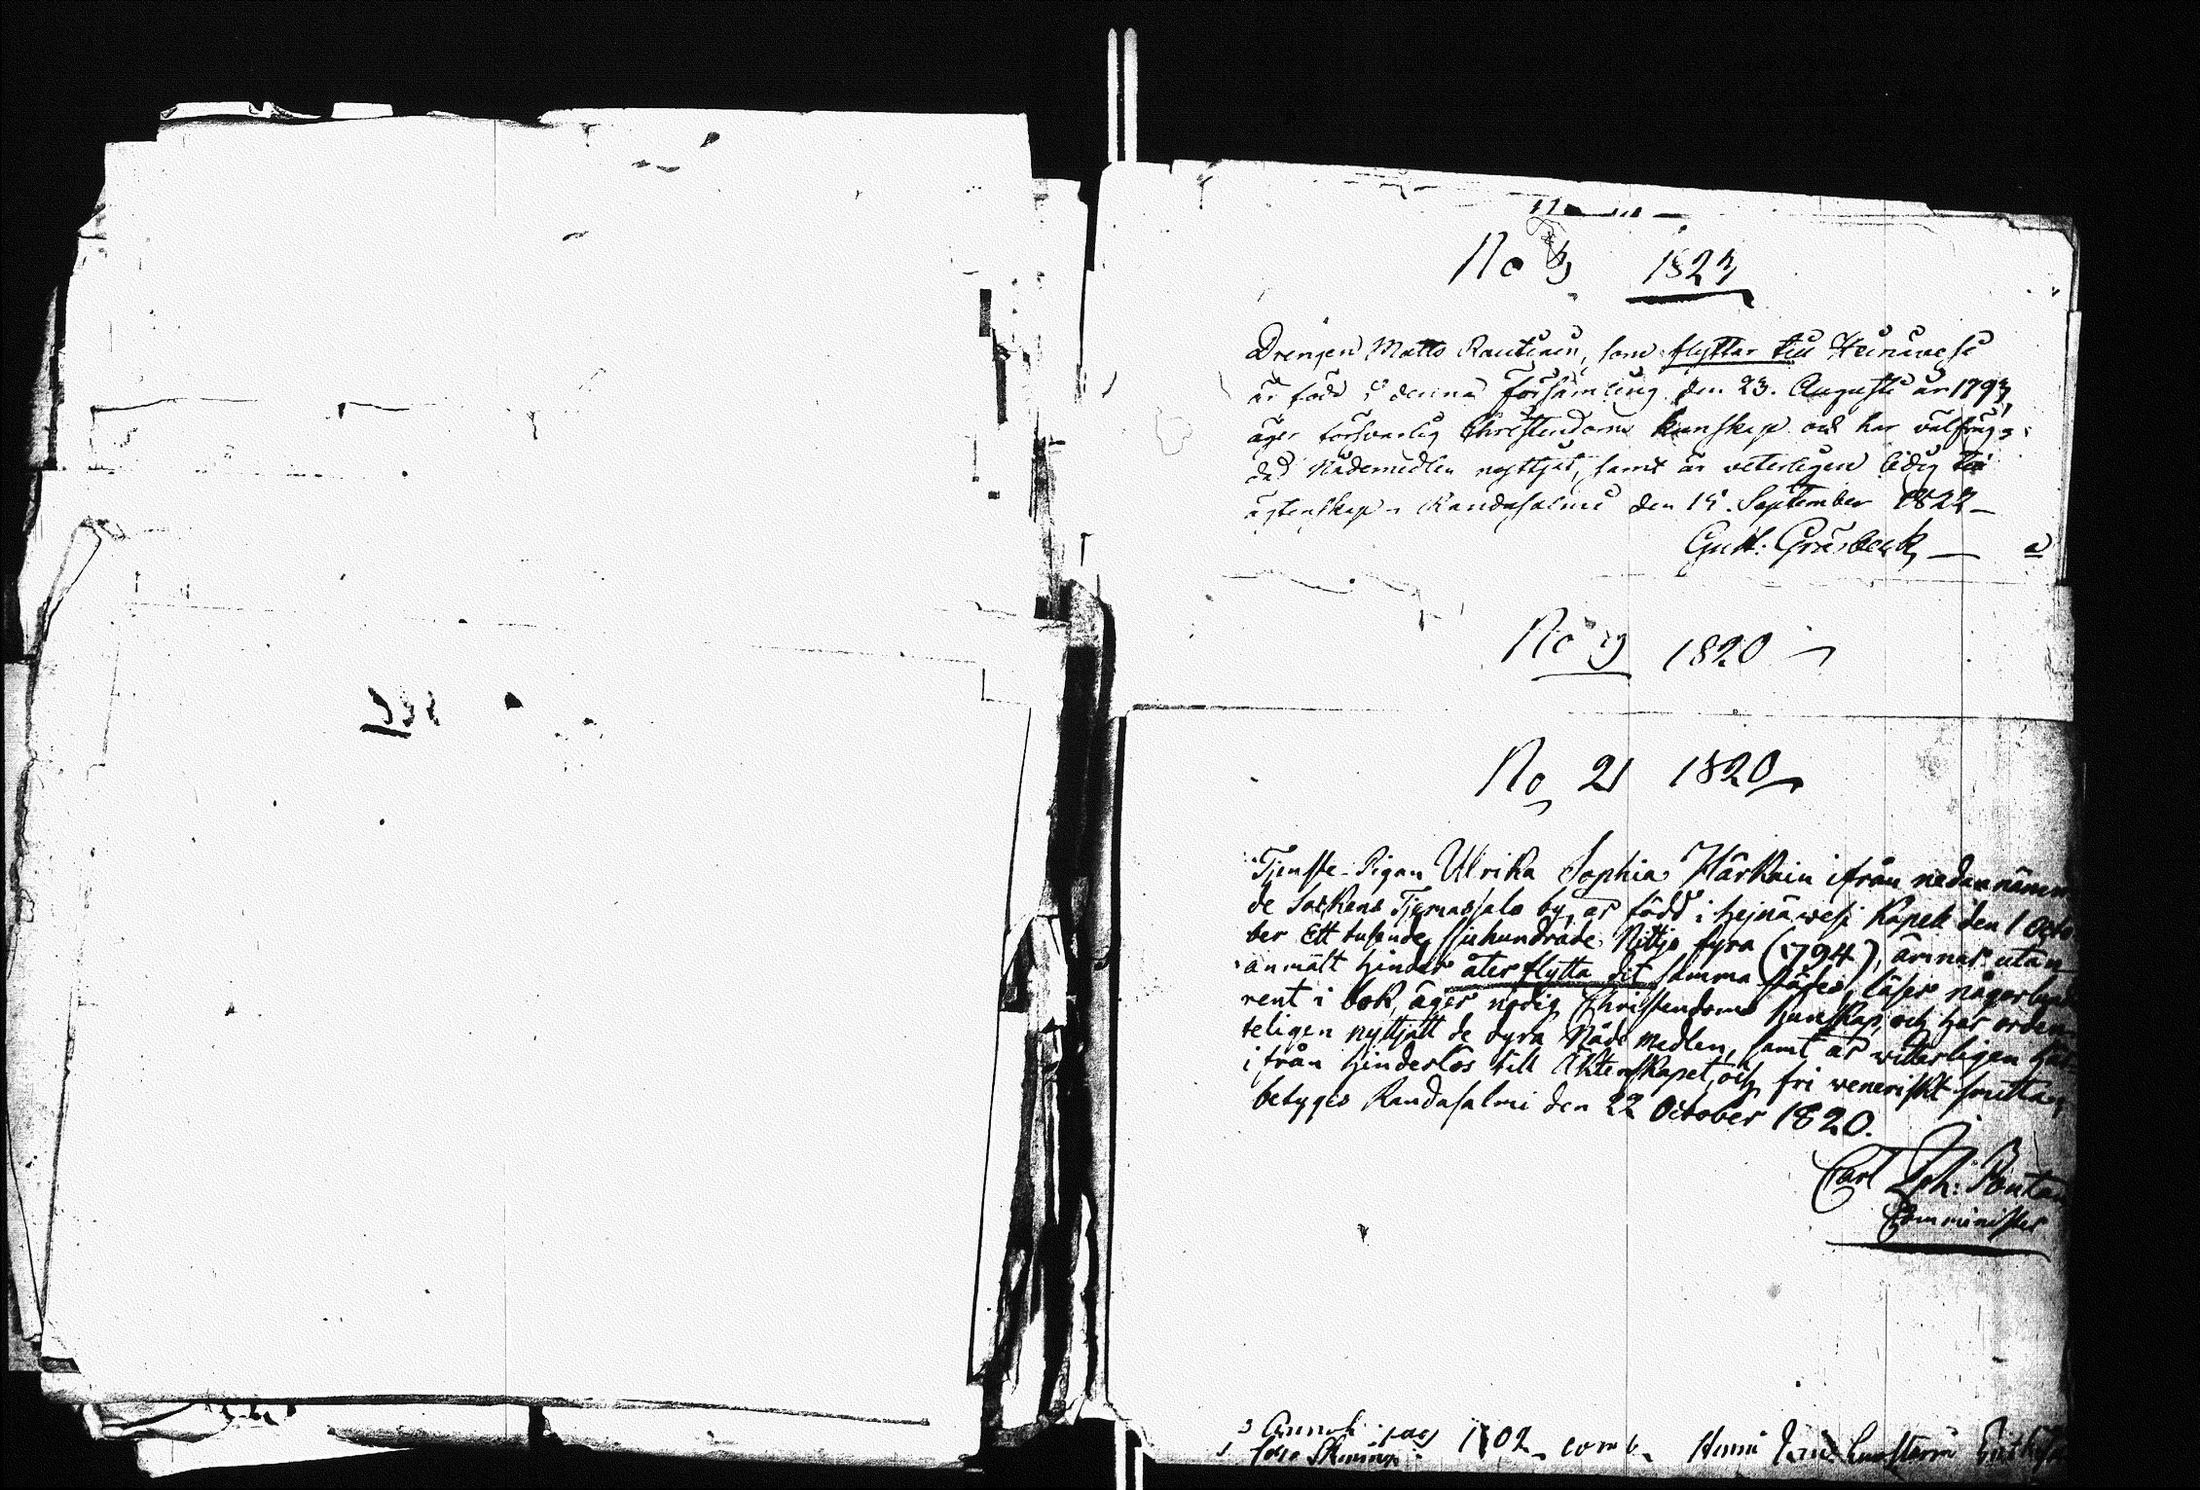 No 3 1823
Drengen Matts Rautiain, som flyttar till Heinävesi
är född i denna församling den 23. Augusti år 1793,
äger försvarlig Christendoms kunskap och har välfräg=
dad Nådemedlen nyttjat, samt är veterligen ledig till
ägtenskap. Randasalmi den 15. September 1822
Gust: Gråsbeck
No 19 1820
No 21 1820
Tjenste-Pigan Ulrika Sophia Härkäin ifrån nedannämn
de Sockens by, är född i hejnäwesi Kapell den 1 Octo
ber Ett tusende sjuhundrade Nittjo fyra (1794), ämnar utan
anmält hinder åter flytta dit samma städes, läser någorlunda
rent i bok, äger nödig Christendoms kunskap, och har orden
teligen nyttjatt de dyra Nåde medlen, samt är witterligen här
ifrån hinderlös till Äktenskapet, och fri veneriskt smitta,
betyges Randasalmi den 22 October 1820.
Carl Joh: Pontan
Comminister
1802